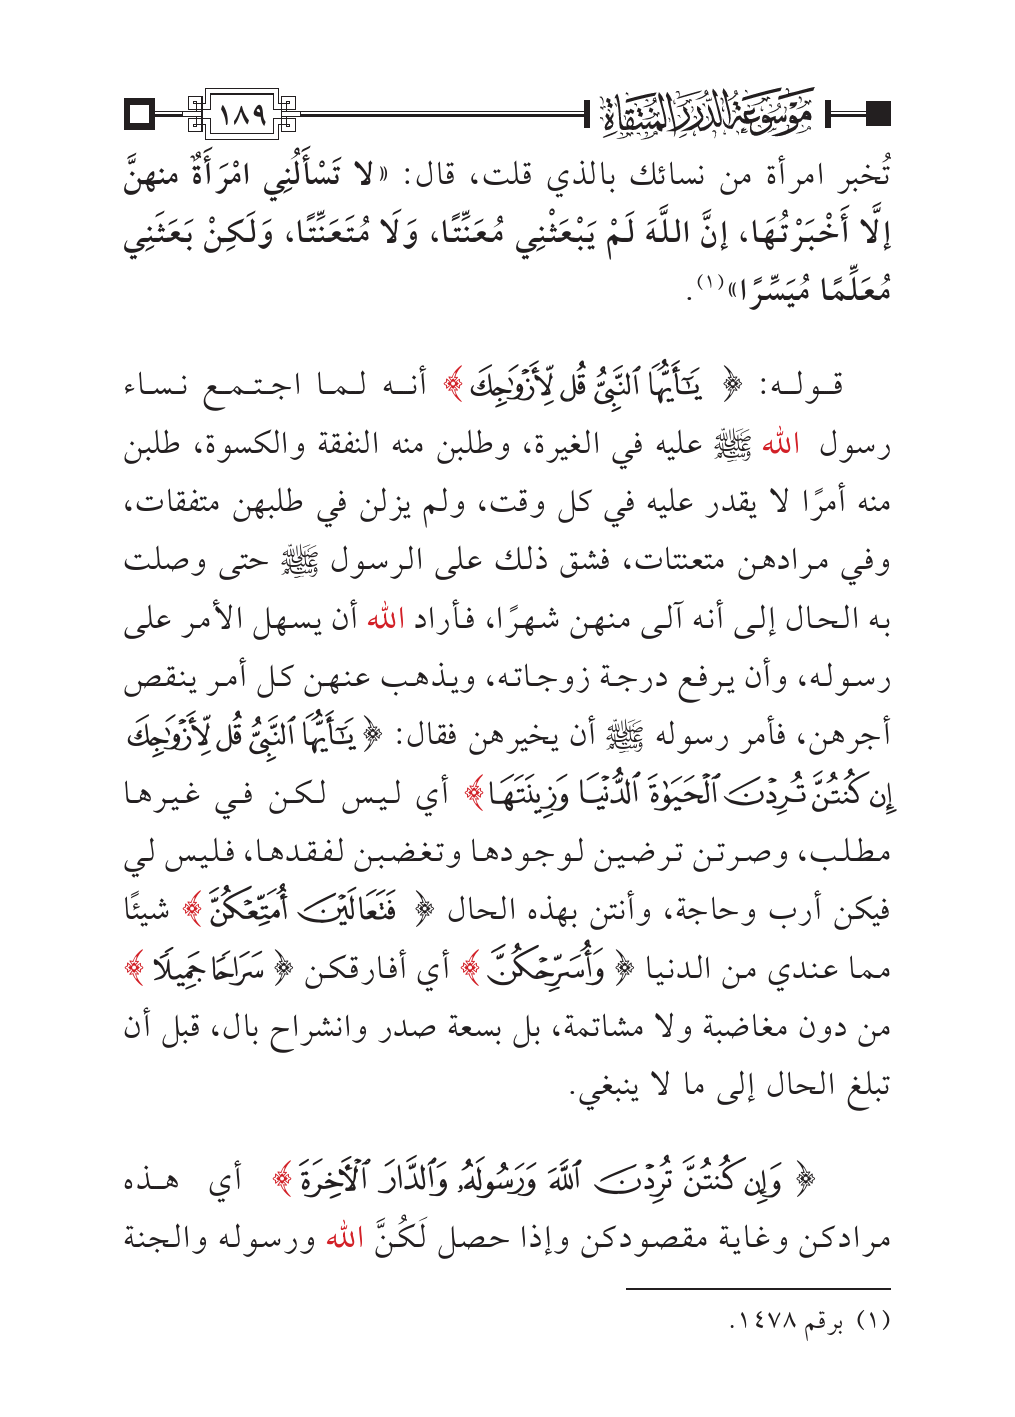 مَوْسُوعَةُ الدُّرَرِ الْمُنْتَقَاةِ
١٨٩
تُخبر امرأة من نسائك بالذي قلت، قال: «لا تَسْأَلُنِي امْرَأَةٌ منهنَّ
إلَّا أَخْبَرْتُهَا، إنَّ اللَّهَ لَمْ يَبْعَثْنِي مُعَنِّتًا، وَلَا مُتَعَنِّتًا، وَلَكِنْ بَعَثَنِي
مُعَلِّمًا مُيَسِّرًا»(١).
قوله: ﴿ يَٰٓأَيُّهَا ٱلنَّبِيُّ قُل لِّأَزْوَٰجِكَ ﴾ أنه لما اجتمع نساء
رسول الله ﷺ عليه في الغيرة، وطلبن منه النفقة والكسوة، طلبن
منه أمرًا لا يقدر عليه في كل وقت، ولم يزلن في طلبهن متفقات،
وفي مرادهن متعنتات، فشق ذلك على الرسول ﷺ حتى وصلت
به الحال إلى أنه آلى منهن شهرًا، فأراد الله أن يسهل الأمر على
رسوله، وأن يرفع درجة زوجاته، ويذهب عنهن كل أمر ينقص
أجرهن، فأمر رسوله ﷺ أن يخيرهن فقال: ﴿ يَٰٓأَيُّهَا ٱلنَّبِيُّ قُل لِّأَزْوَٰجِكَ
إِن كُنتُنَّ تُرِدْنَ ٱلْحَيَوٰةَ ٱلدُّنْيَا وَزِينَتَهَا ﴾ أي ليس لكن في غيرها
مطلب، وصرتن ترضين لوجودها وتغضبن لفقدها، فليس لي
فيكن أرب وحاجة، وأنتن بهذه الحال ﴿ فَتَعَالَيْنَ أُمَتِّعْكُنَّ ﴾ شيئًا
مما عندي من الدنيا ﴿ وَأُسَرِّحْكُنَّ ﴾ أي أفارقكن ﴿ سَرَاحًا جَمِيلًا ﴾
من دون مغاضبة ولا مشاتمة، بل بسعة صدر وانشراح بال، قبل أن
تبلغ الحال إلى ما لا ينبغي.
﴿ وَإِن كُنتُنَّ تُرِدْنَ ٱللَّهَ وَرَسُولَهُۥ وَٱلدَّارَ ٱلْأَخِرَةَ ﴾ أي هذه
مرادكن وغاية مقصودكن وإذا حصل لَكُنَّ الله ورسوله والجنة
(١) برقم ١٤٧٨.